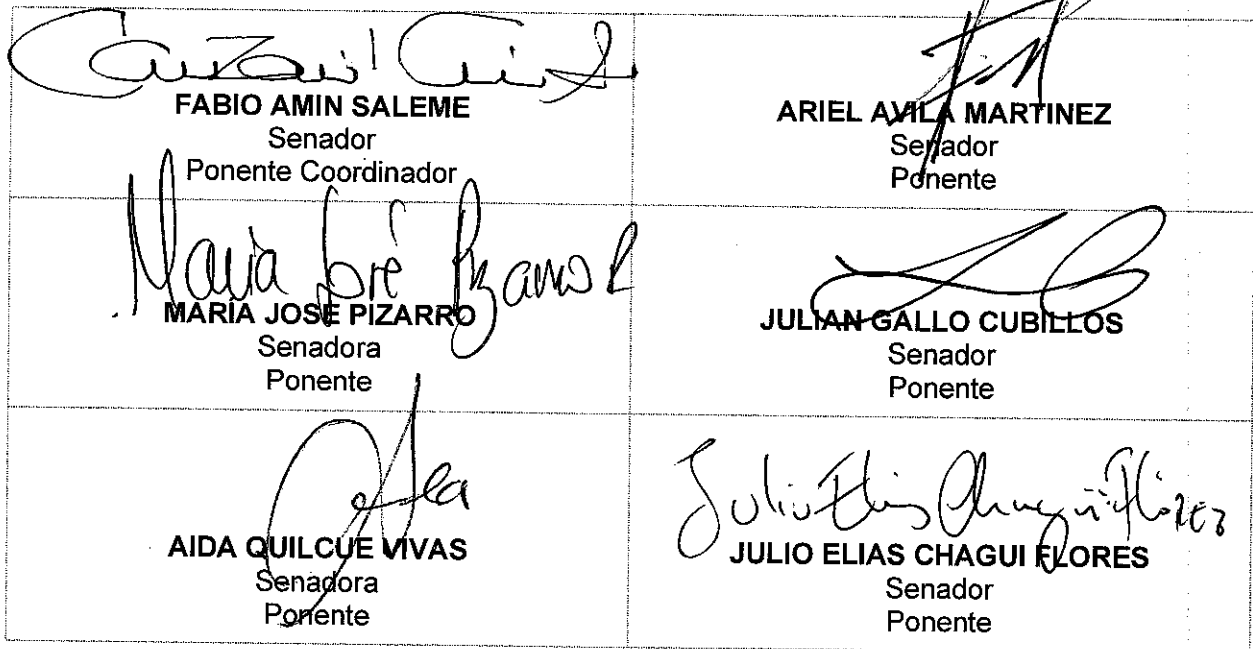 FABIO AMIN SALEME
Senador
Ponente Coordinador
ARIEL AVILA MARTINEZ
Senador
Ponente
Maria José Pizarro R
MARÍA JOSÉ PIZARRO
Senadora
Ponente
JULIAN GALLO CUBILLOS
Senador
Ponente
AIDA QUILCUE VIVAS
Senadora
Ponente
Julio Elias Chagüi Flórez
JULIO ELIAS CHAGUI FLORES
Senador
Ponente